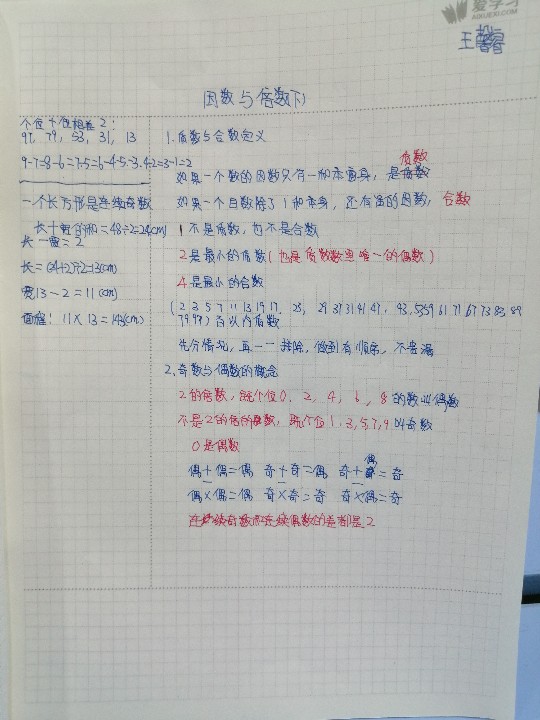 爱学习
AIXUEXI.COM
王馨睿
因数与倍数(下)
个位十位相差2:
97, 79, 53, 31, 13
9-7=8-6=7-5=6-4=5-3=4-2=3-1=2
一个长方形是连续奇数
长+宽的和=48÷2=24(cm)
长-宽=2
长=(24+2)÷2=13(cm)
宽13-2=11(cm)
面积:11×13=143(cm)
1.质数与合数定义
质数
如果一个数的因数只有一和本身,是质数
如果一个自数除了1和本身,还有别的因数,合数
1不是质数,也不是合数
2是最小的质数(也是质数数里唯一的偶数)
4是最小的合数
(2 3 5 7 11 13 19 17, 23, 29 37 31 41 47, 43, 53 59 61 71 67 73 83, 89
79 97)百以内质数
先分情况,再一一排除,做到有顺序,不遗漏
2.奇数与偶数的概念
2的倍数,既个位0, 2, 4, 6, 8的数叫偶数
不是2的倍的数,既个位1,3,5,7,9叫奇数
0是偶数
偶+偶=偶 奇+奇=偶 奇+偶=奇
偶×偶=偶 奇×奇=奇 奇×偶=奇
连续奇数和连续偶数的差都是2